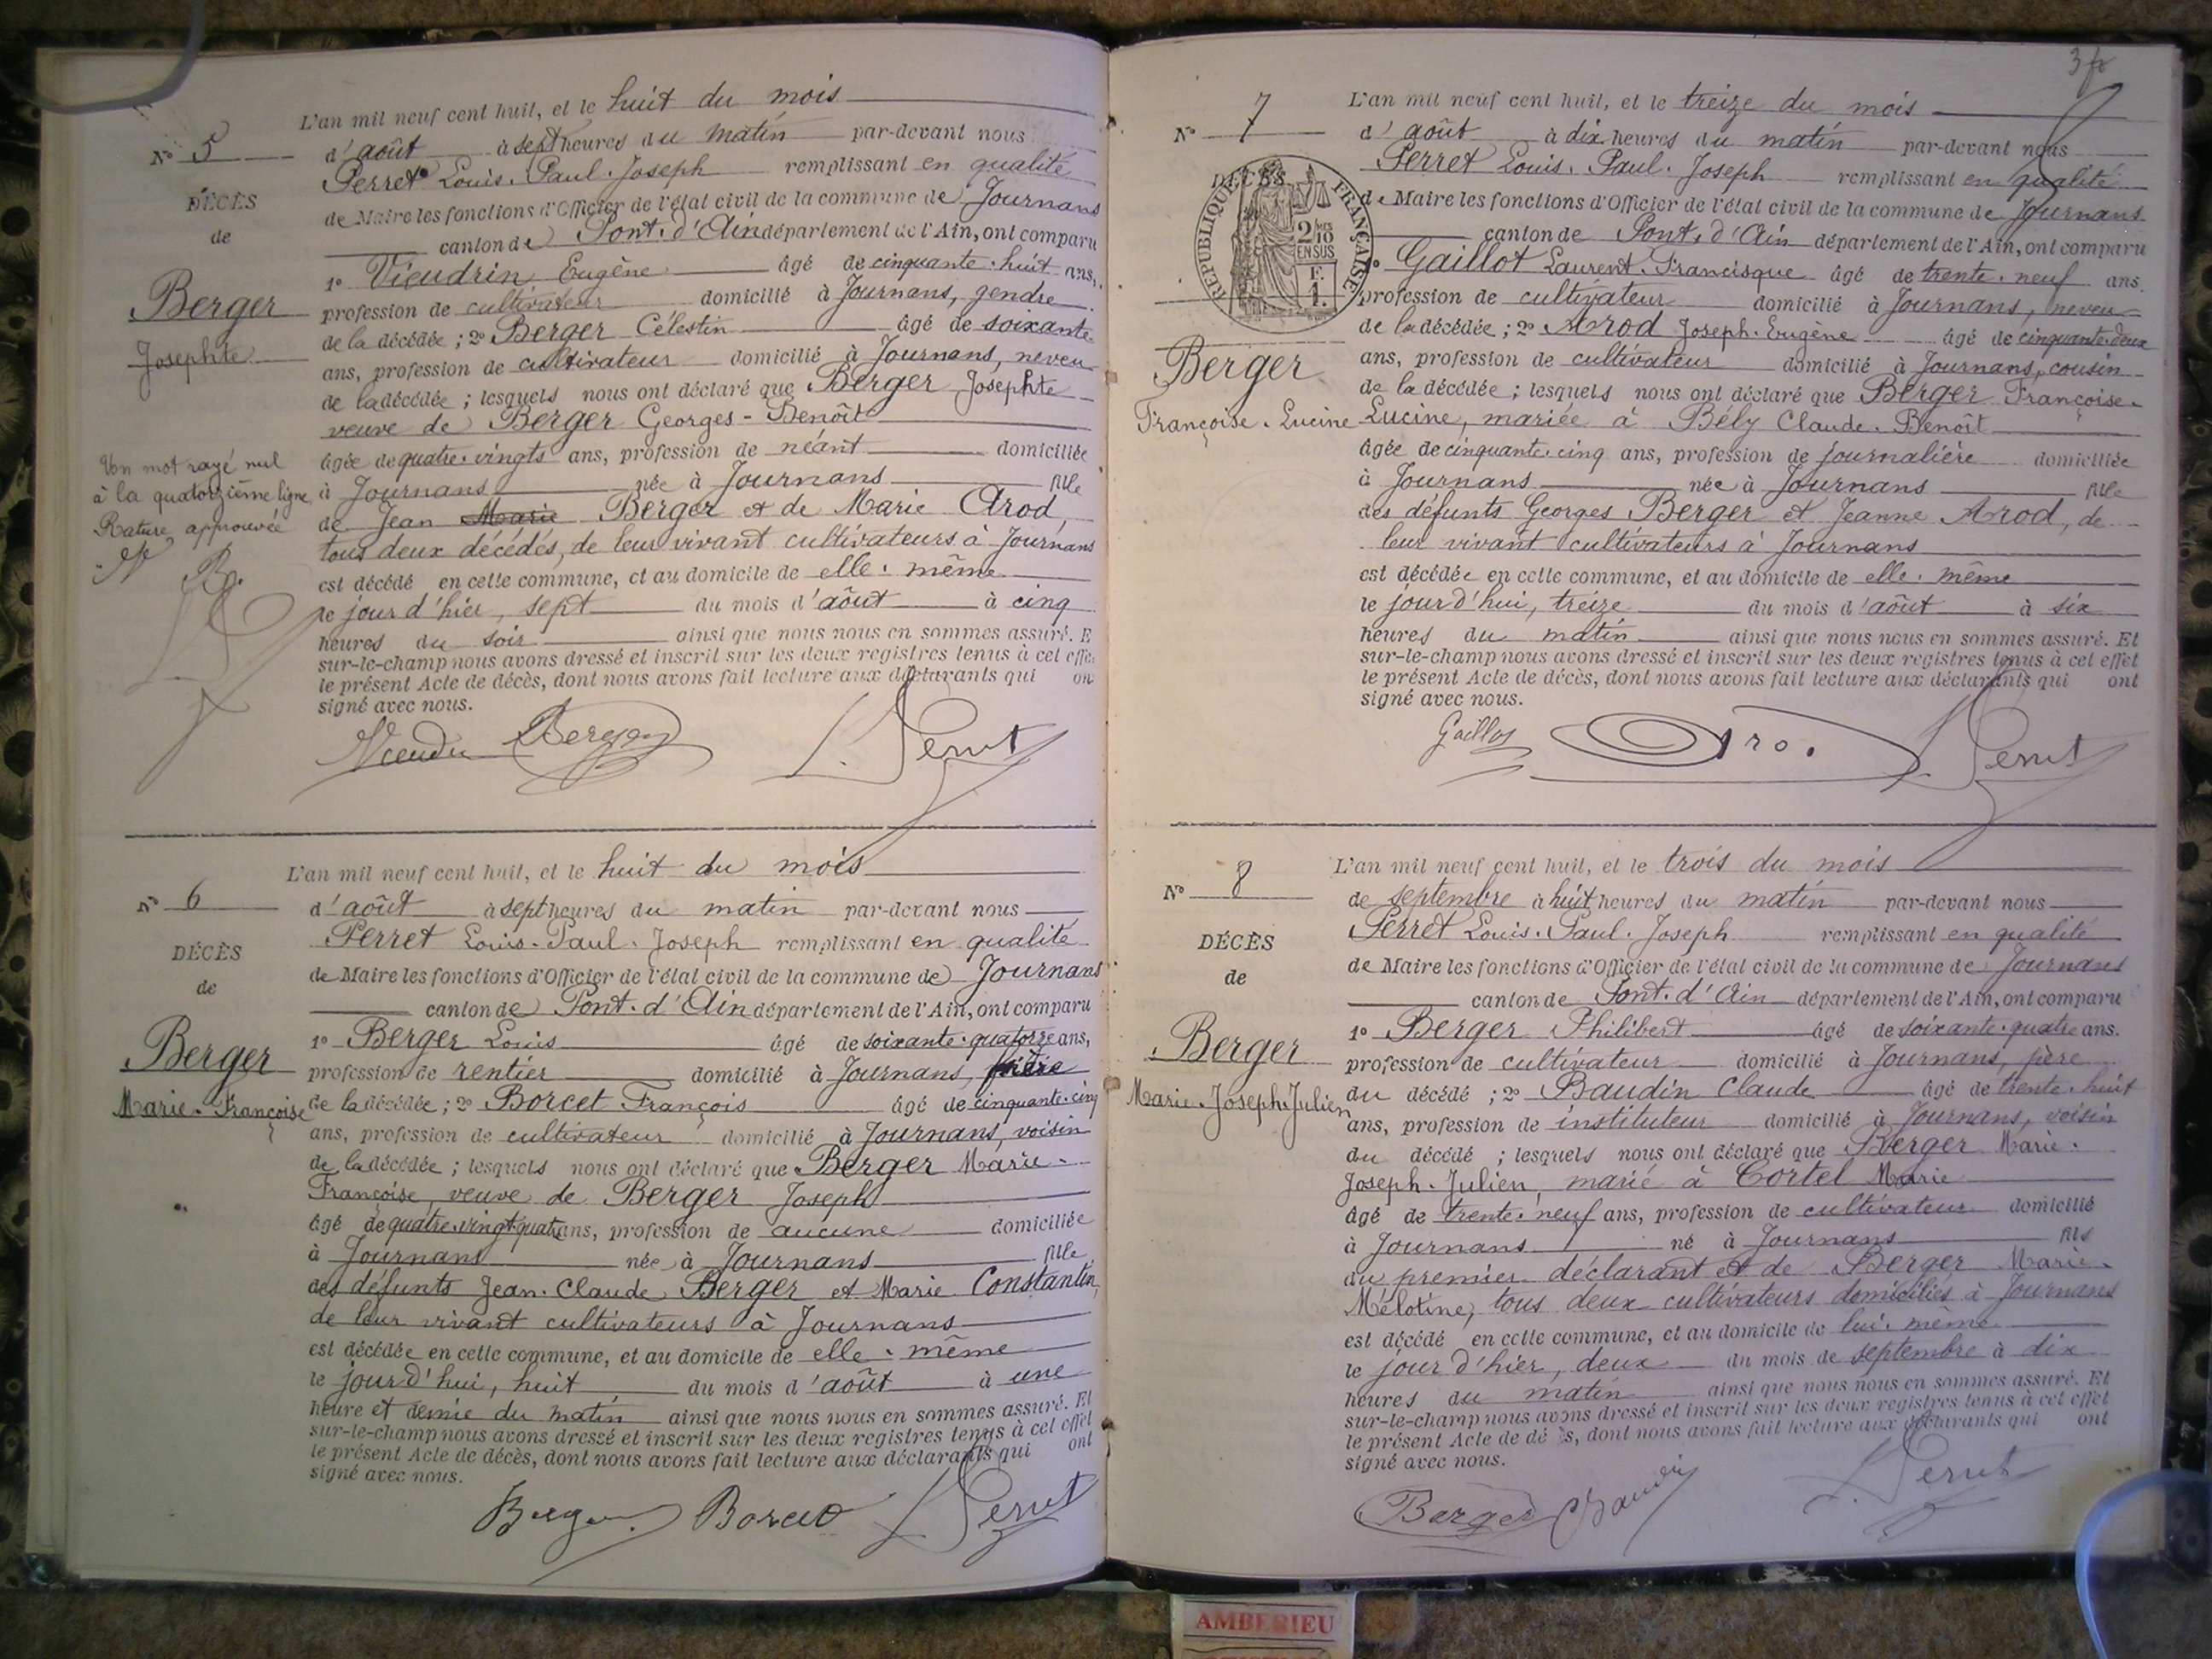 L'an mil neuf cent huit, et le huit du mois
N° 5
d'août à sept heures du matin par-devant nous
Perret Louis-Paul-Joseph remplissant en qualité
DÉCÈS
de Maire les fonctions d'Officier de l'état civil de la commune de Journans
de
canton de Pont-d'Ain département de l'Ain, ont comparu
1° Vieudrin Eugène âgé de cinquante-huit ans,
Berger
profession de cultivateur domicilié à Journans, gendre
de la décédée ; 2° Berger Célestin âgé de soixante
Josephte
ans, profession de cultivateur domicilié à Journans, neveu
de la décédée ; lesquels nous ont déclaré que Berger Josephte
veuve de Berger Georges-Benoît
âgée de quatre-vingts ans, profession de néant domiciliée
Un mot rayé nul
à la quatorzième ligne
Rature approuvée
à Journans née à Journans fille
de Jean Marie Berger et de Marie Arod,
tous deux décédés, de leur vivant cultivateurs à Journans
est décédé en cette commune, et au domicile de elle-même
le jour d'hier, sept du mois d'août à cinq
heures du soir ainsi que nous nous en sommes assuré. E
sur-le-champ nous avons dressé et inscrit sur les deux registres tenus à cet effe
le présent Acte de décès, dont nous avons fait lecture aux déclarants qui on
signé avec nous.
Vieudri Berger L. Perret
L'an mil neuf cent huit, et le huit du mois
N° 6
d'août à sept heures du matin par-devant nous
Perret Louis-Paul-Joseph remplissant en qualité
DÉCÈS
de Maire les fonctions d'Officier de l'état civil de la commune de Journans
de
canton de Pont-d'Ain département de l'Ain, ont comparu
1° Berger Louis âgé de soixante-quatorze ans,
Berger
profession de rentier domicilié à Journans, frère
Marie-Françoise
de la décédée ; 2° Borcet François âgé de cinquante-cinq
ans, profession de cultivateur domicilié à Journans, voisin
de la décédée ; lesquels nous ont déclaré que Berger Marie-
Françoise, veuve de Berger Joseph
âgé de quatre-vingt-quatre ans, profession de aucune domiciliée
à Journans née à Journans fille
des défunts Jean-Claude Berger et Marie Constantin,
de leur vivant cultivateurs à Journans
est décédée en cette commune, et au domicile de elle-même
le jour d'hui, huit du mois d'août à une
heure et demie du matin ainsi que nous nous en sommes assuré. Et
sur-le-champ nous avons dressé et inscrit sur les deux registres tenus à cet effet
le présent Acte de décès, dont nous avons fait lecture aux déclarants qui ont
signé avec nous.
Berger Borcet L. Perret
3 fo
L'an mil neuf cent huit, et le treize du mois
N° 7
d'août à dix heures du matin par-devant nous
Perret Louis-Paul-Joseph remplissant en qualité
DÉCÈS
RÉPUBLIQUE FRANÇAISE
2/10 EN SUS
F.
1.
de Maire les fonctions d'Officier de l'état civil de la commune de Journans
canton de Pont-d'Ain département de l'Ain, ont comparu
1° Gaillot Laurent-Francisque âgé de trente-neuf ans.
profession de cultivateur domicilié à Journans, neveu
de la décédée ; 2° Arod Joseph-Eugène âgé de cinquante-deux
Berger
ans, profession de cultivateur domicilié à Journans, cousin
de la décédée ; lesquels nous ont déclaré que Berger Françoise-
Françoise-Lucine
Lucine, mariée à Bély Claude-Benoît
âgée de cinquante-cinq ans, profession de journalière domiciliée
à Journans née à Journans fille
des défunts Georges Berger et Jeanne Arod, de
leur vivant cultivateurs à Journans
est décédée en cette commune, et au domicile de elle-même
le jour d'hui, treize du mois d'août à six
heures du matin ainsi que nous nous en sommes assuré. Et
sur-le-champ nous avons dressé et inscrit sur les deux registres tenus à cet effet
le présent Acte de décès, dont nous avons fait lecture aux déclarants qui ont
signé avec nous.
Gaillot Aro. L. Perret
L'an mil neuf cent huit, et le trois du mois
N° 8
de septembre à huit heures du matin par-devant nous
Perret Louis-Paul-Joseph remplissant en qualité
DÉCÈS
de Maire les fonctions d'Officier de l'état civil de la commune de Journans
de
canton de Pont-d'Ain département de l'Ain, ont comparu
1° Berger Philibert âgé de soixante-quatre ans.
Berger
profession de cultivateur domicilié à Journans, père
Marie-Joseph-Julien
du décédé ; 2° Baudin Claude âgé de trente-huit
ans, profession de instituteur domicilié à Journans, voisin
du décédé ; lesquels nous ont déclaré que Berger Marie-
Joseph-Julien, marié à Cortel Marie
âgé de trente-neuf ans, profession de cultivateur domicilié
à Journans né à Journans fils
du premier déclarant et de Berger Marie-
Mélotine, tous deux cultivateurs domiciliés à Journans
est décédé en cette commune, et au domicile de lui-même
le jour d'hier, deux du mois de septembre à dix
heures du matin ainsi que nous nous en sommes assuré. Et
sur-le-champ nous avons dressé et inscrit sur les deux registres tenus à cet effet
le présent Acte de dé s, dont nous avons fait lecture aux déclarants qui ont
signé avec nous.
Berger Baudin L. Perret
AMBERIEU